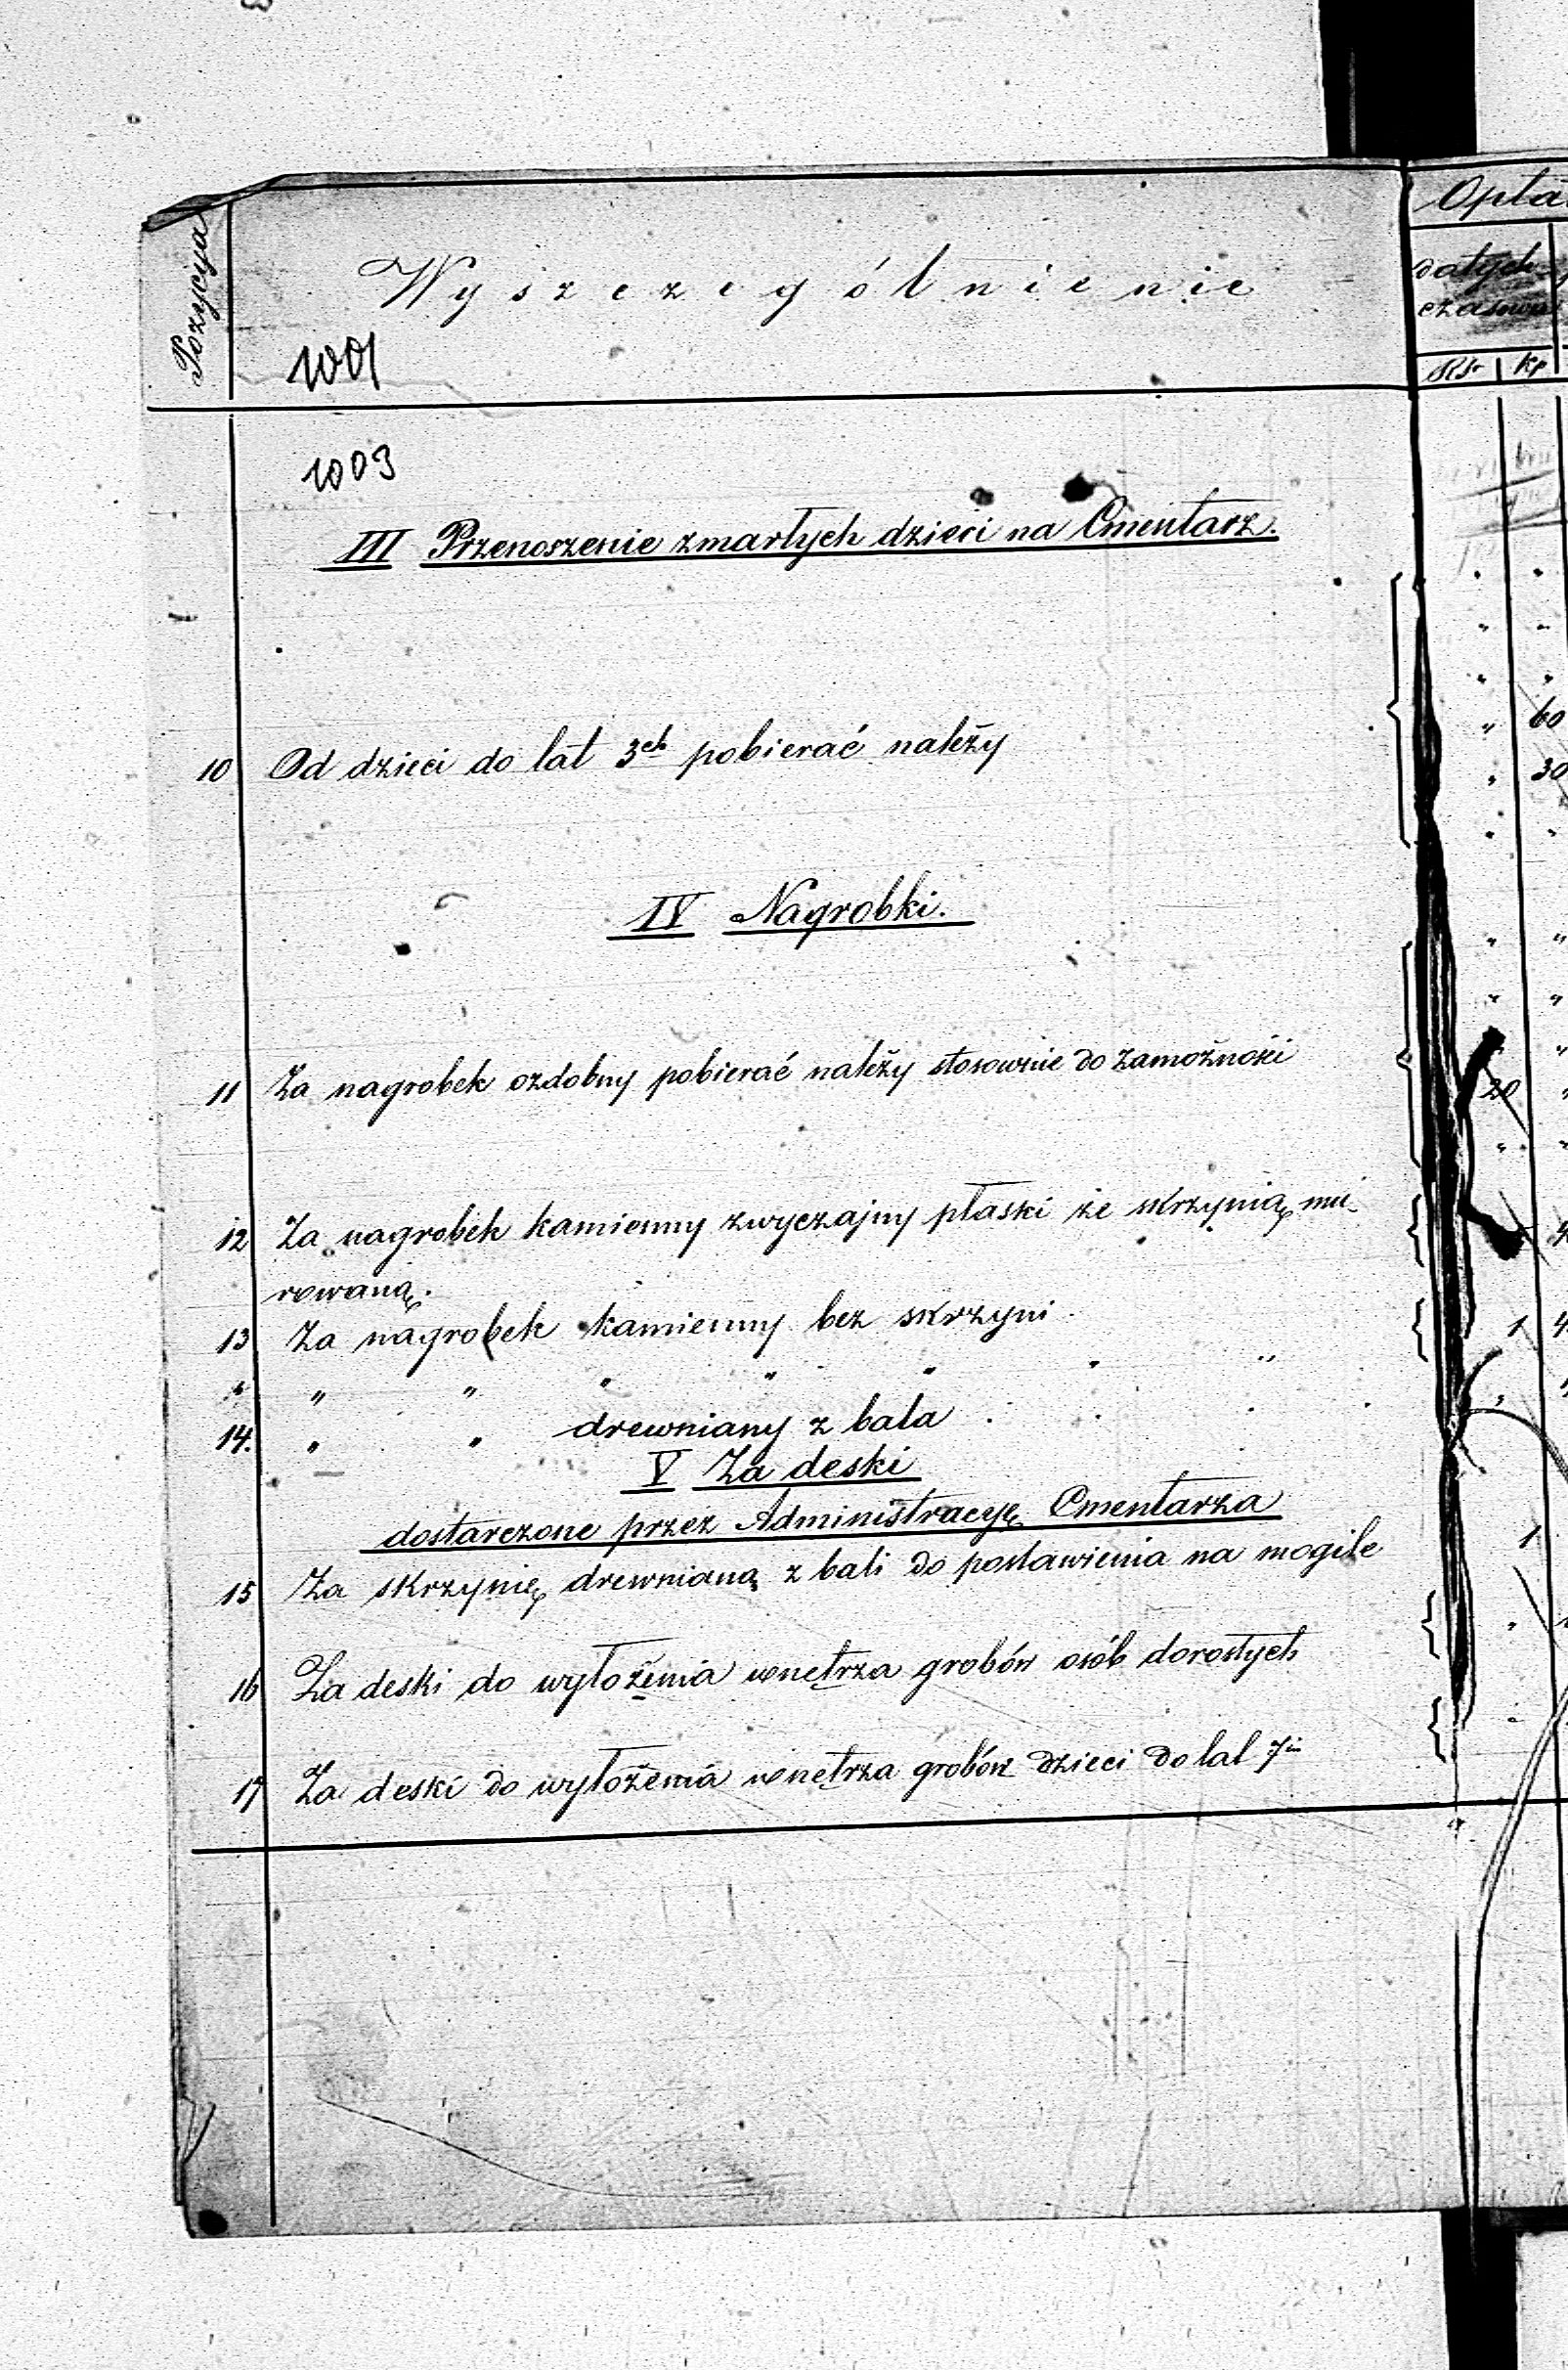 Pozycya
Wyszczególnienie
1001
1003
III Przenoszenie zmarłych dzieci na Cmentarz.
10 Od dzieci do lat 3ch pobierać należy
IV Nagrobki.
11 Za nagrobek ozdobny pobierać należy stosownie do zamożności
12 Za nagrobek kamienny zwyczajny płaski ze skrzynią mu-
rowaną.
13 Za nagrobek kamienny bez skrzyni
" " " " " " " "
14. " " drewniany z bala
V Za deski
dostarczone przez Administracyę Cmentarza
15 Za skrzynię drewnianą z bali do postawienia na mogile
16 Za deski do wyłożenia wnętrza grobów osób dorosłych
17 Za deski do wyłożenia wnętrza grobów dzieci do lat 7iu
Opła
dotych-
czasowa
Rs. kp
60
30
20
1
1